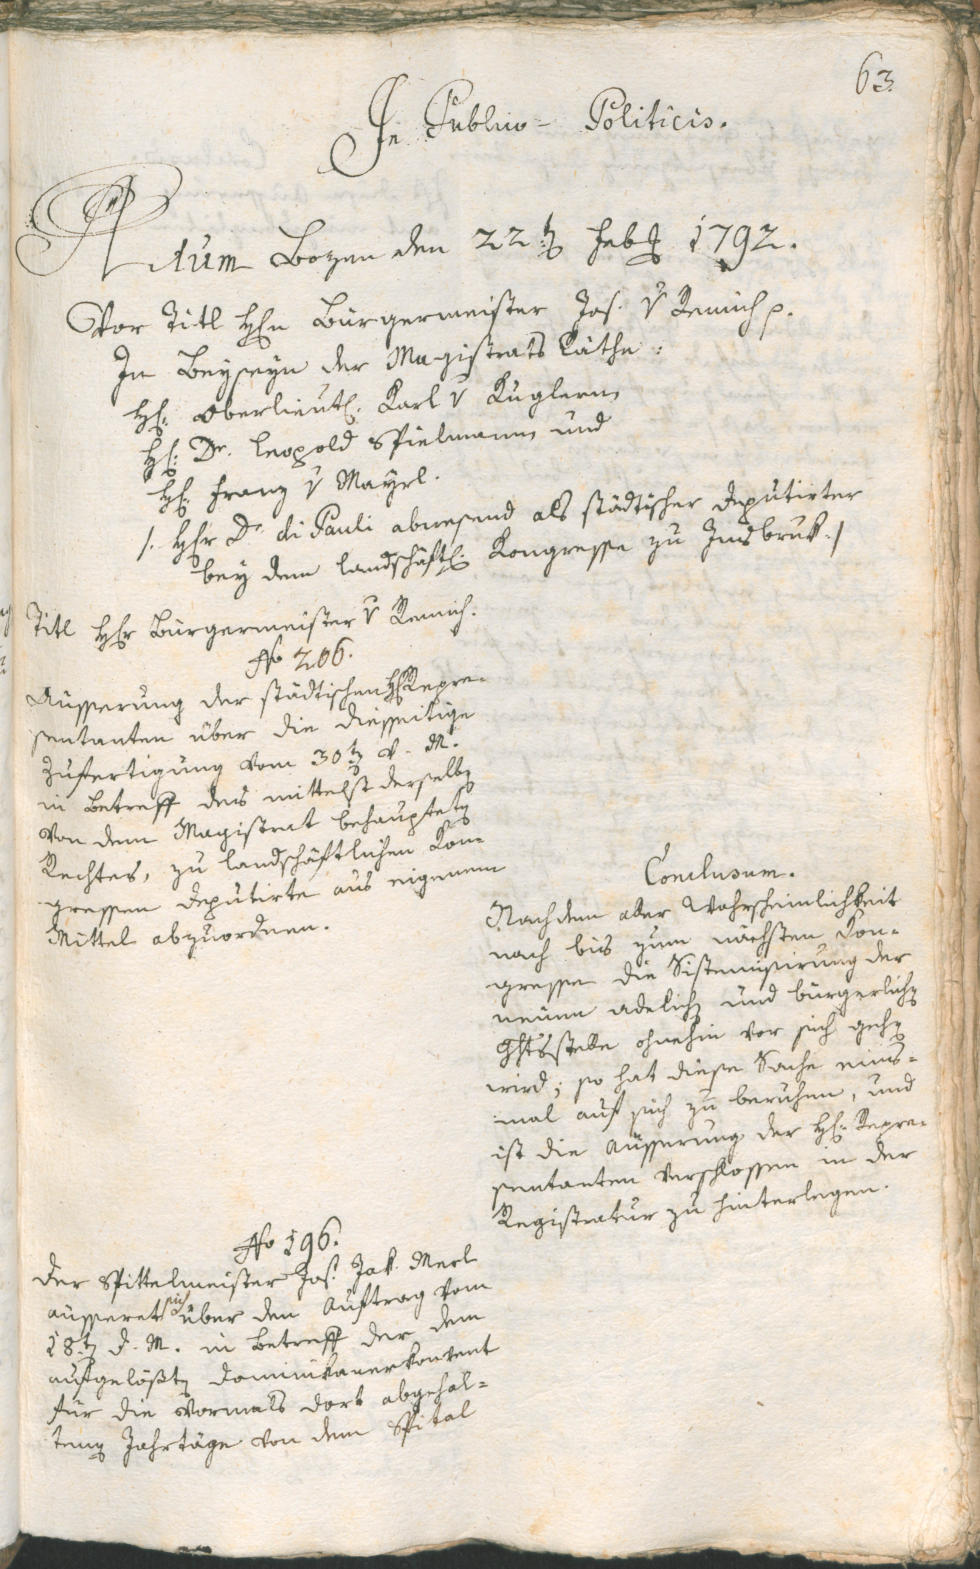 63.
In Publico-Politicis.
Actum Bozen den 22t Feb 1792.
Vor Titl Hhn Bürgermeister Jos. v Remich p.
In Beyseyn der Magistrats Räthe:
H: Oberlieut: Karl v Kuglern
H: Dr. Leopold Spielmann und
H: Franz v Mayrl.
/: Hhr Dr di Pauli abwesend als städtischer Deputirter
bey dem landschäftl: Kongresse zu Insbruk :/
Titl Hhr Bürgermeister v Remich.
No 206.
Äusserung der städtischen HH Repre-
sentanten über die diesseitige
Zufertigung vom 30t v. M.
in Betreff des mittelst derselb
von dem Magistrat behauptet
Rechtes, zu landschäftlichen Kon-
gressen Deputirte aus eigenem
Mittel abzuordnen.
Conclusum.
Nachdem aller Wahrscheinlichkeit
nach bis zum nächsten Kon-
gresse die Sistemisirung der
neuen adelich und bürgerlich
Ghtsstelle ohnehin vor sich geh
wird; so hat diese Sache eins-
mal auf sich zu beruhen, und
ist die Äusserung der H: Repre-
sentanten verschlossen in der
Registratur zu hinterlegen.
No 196.
Der Spittelmeister Jos. Jak. Merl
äusseret sich über den Auftrag vom
18t d. M. in Betreff der dem
aufgelößt Dominikanerkonvent
für die vormals dort abgehal-
tenen Jahrtäge von dem Spital